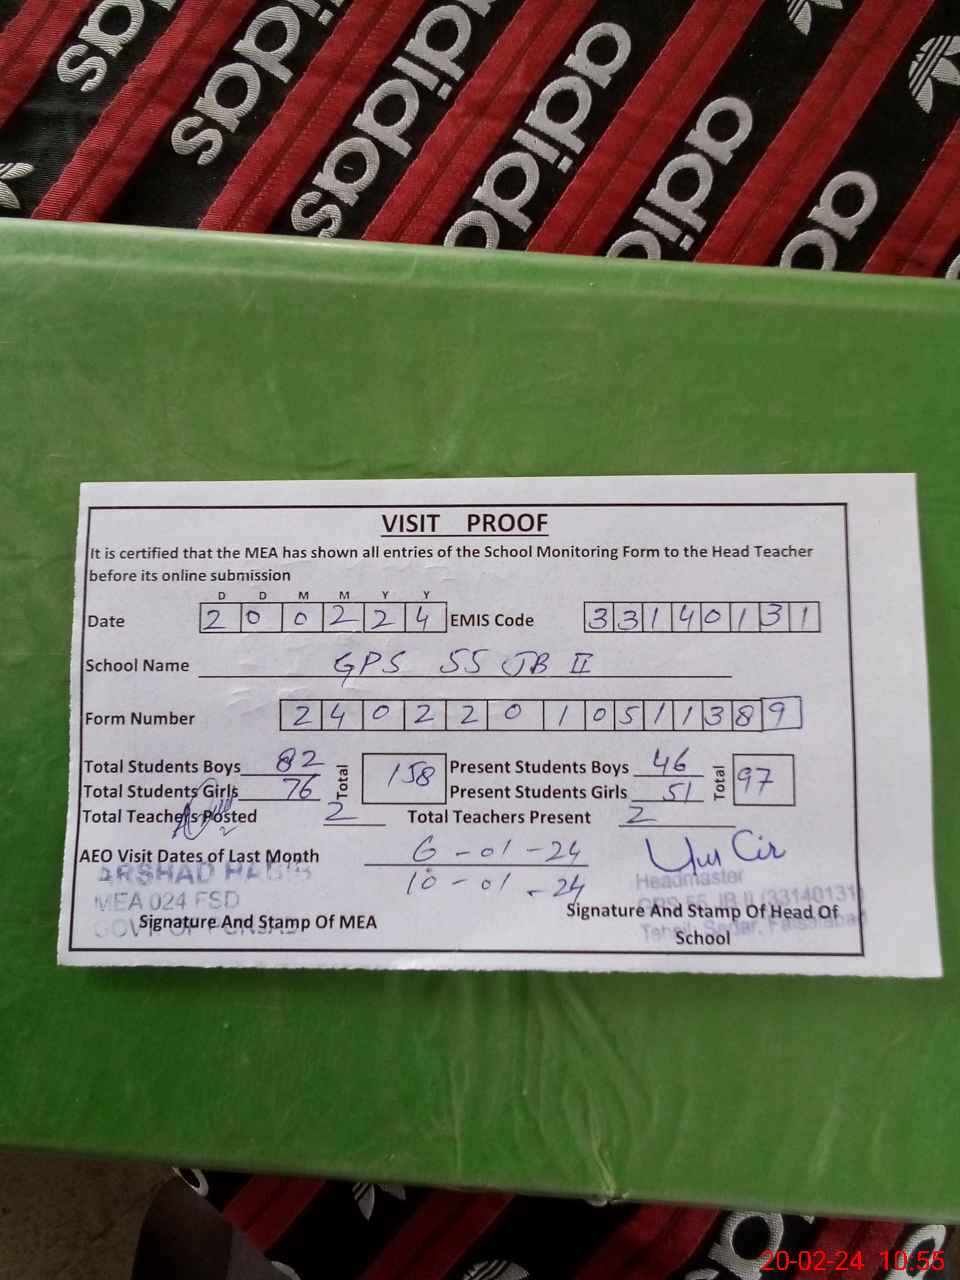 adidas
adidas
adidas
adidas
adidas
adidas
VISIT PROOF
It is certified that the MEA has shown all entries of the School Monitoring Form to the Head Teacher
before its online submission
D D M M Y Y
Date 2 0 0 2 2 4 EMIS Code 3 3 1 4 0 1 3 1
School Name GPS 55 JB II
Form Number 2 4 0 2 2 0 1 0 5 1 1 3 8 9
Total Students Boys 82 Total 158 Present Students Boys 46 Total 97
Total Students Girls 76 Present Students Girls 51
Total Teachers Posted 2 Total Teachers Present 2
AEO Visit Dates of Last Month 6-01-24
10-01-24
ARSHAD HABIB
MEA 024 FSD
GOVT OF PUNJAB
Signature And Stamp Of MEA
Headmaster
GPS 55 JB II (33140131)
Tehsil Sadar, Faisalabad
Signature And Stamp Of Head Of
School
20-02-24 10:55